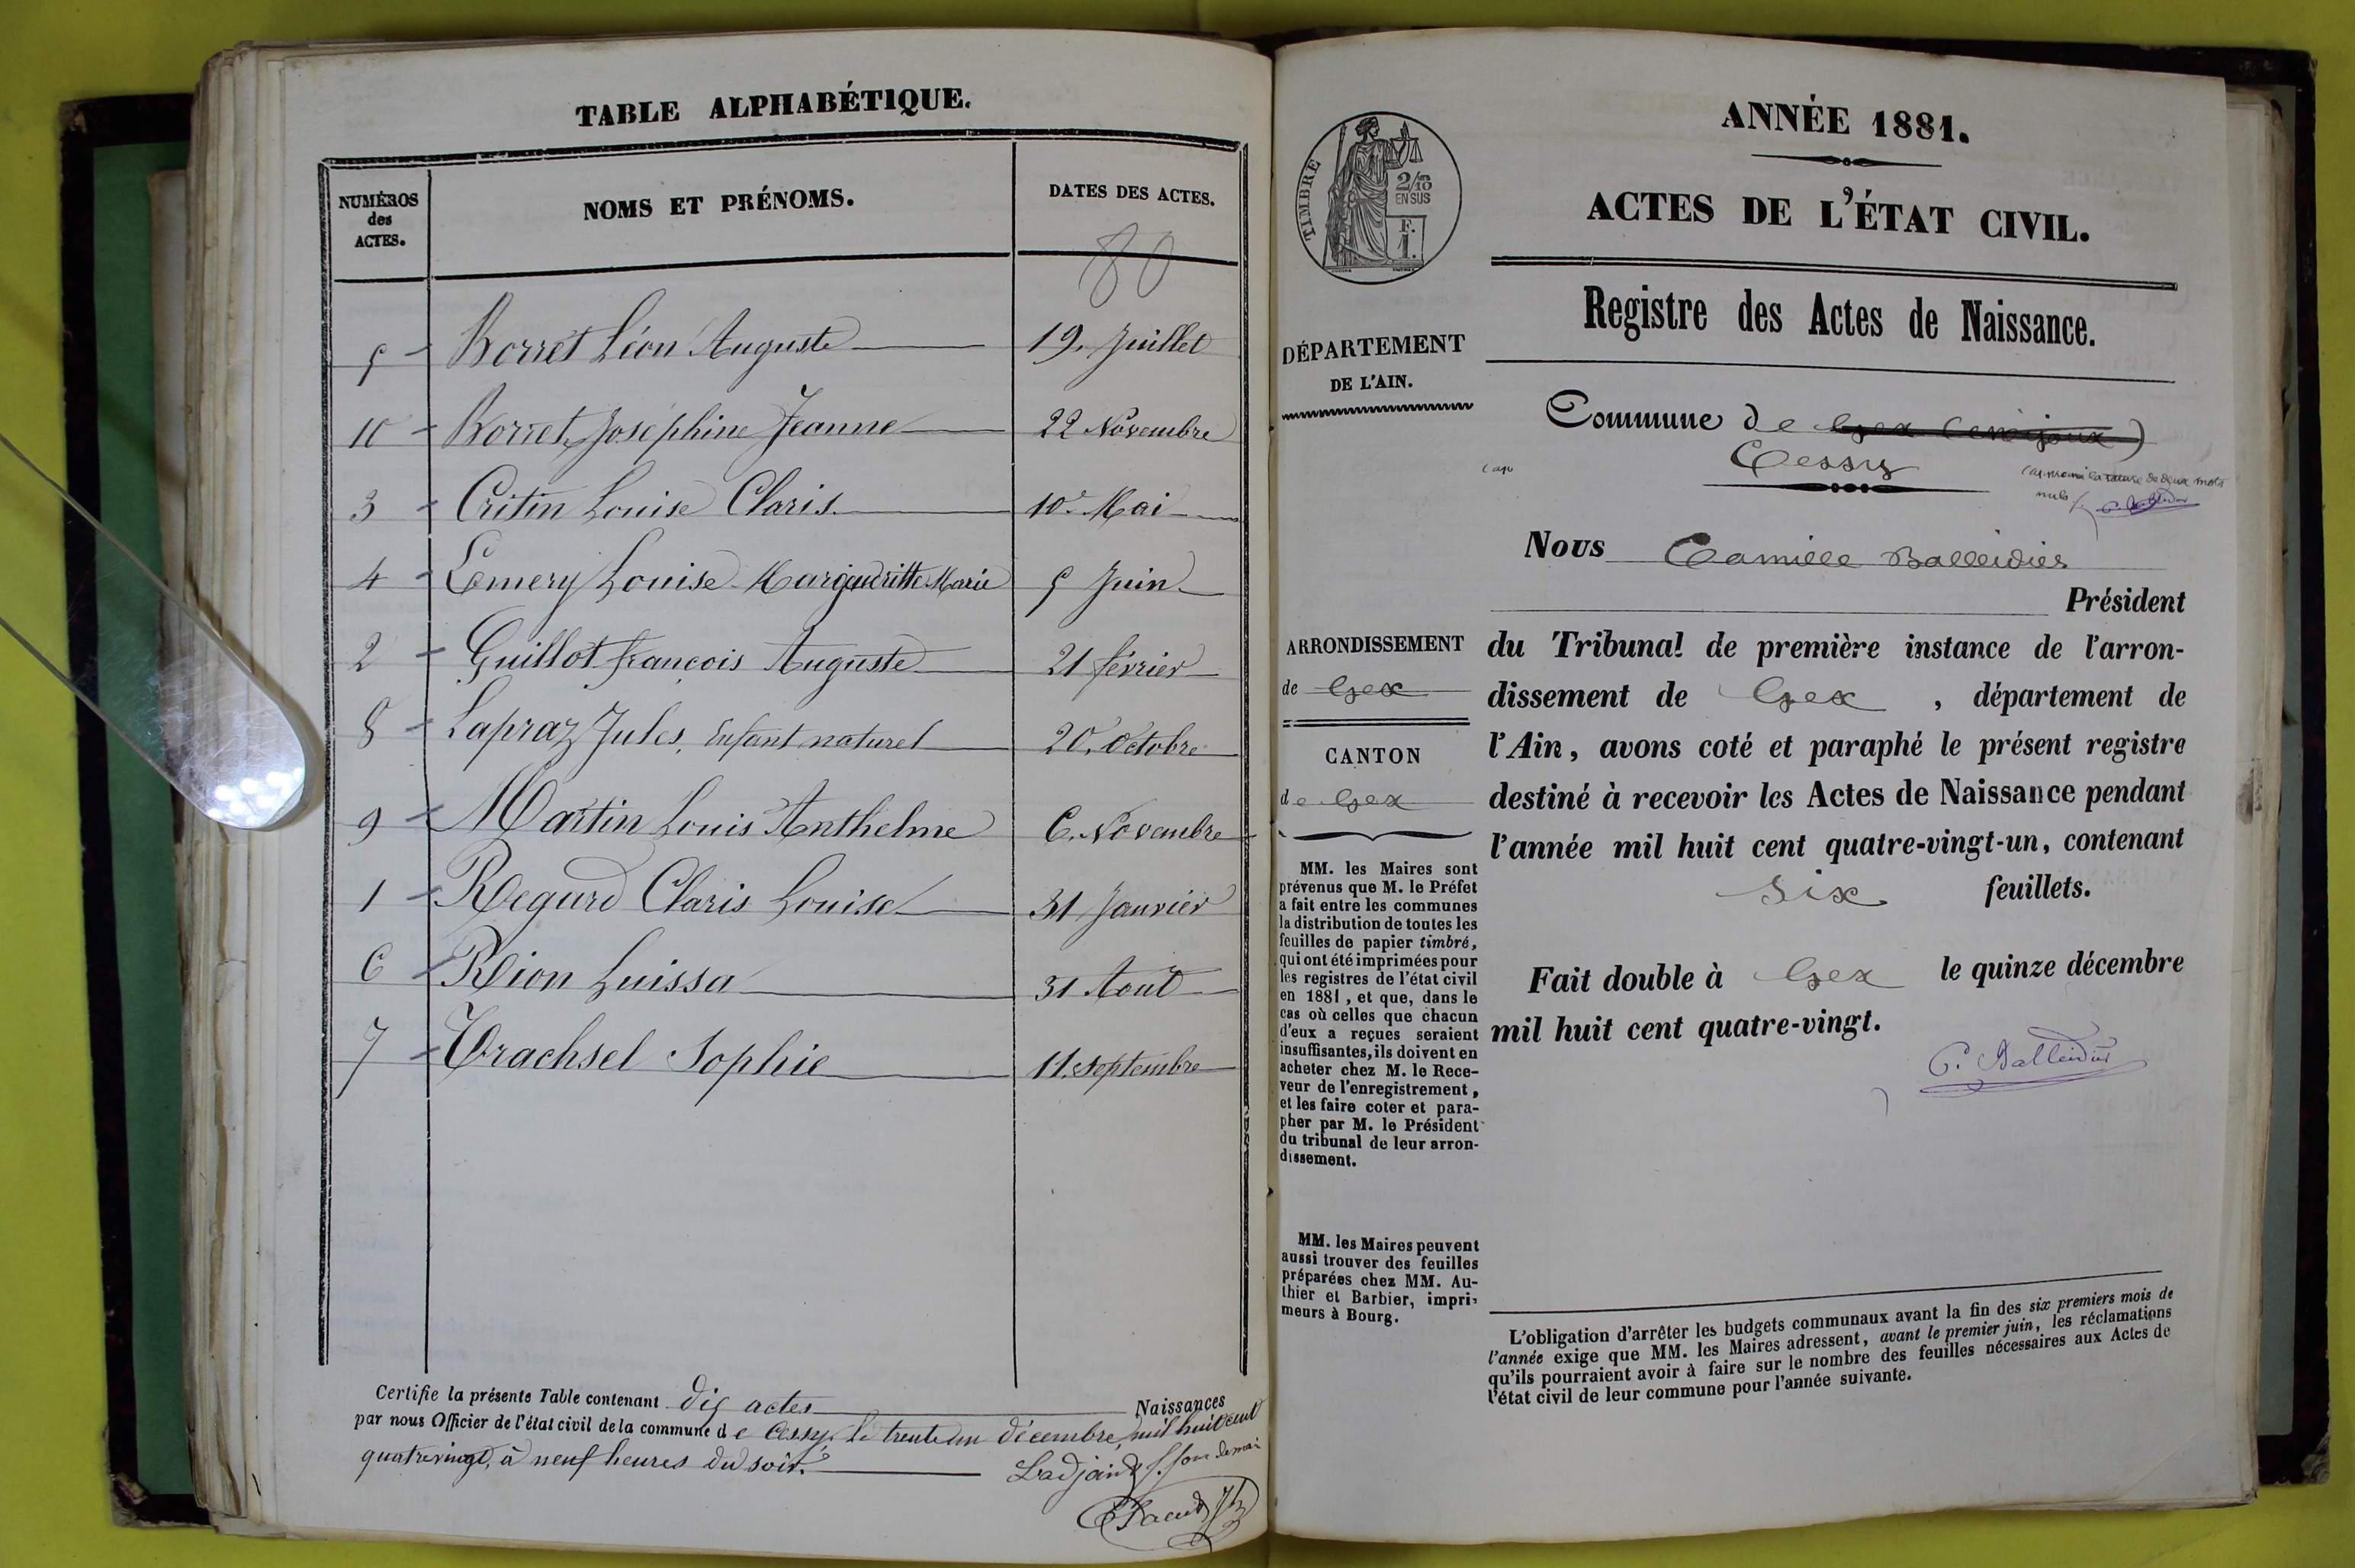 TABLE ALPHABÉTIQUE.
NUMÉROS des ACTES. NOMS ET PRÉNOMS. DATES DES ACTES.
80
5 Borret Léon Auguste 19. Juillet
10 Borret Joséphine Jeanne 22 Novembre
3 Critin Louise Claris 10 Mai
4 Emery Louise Margueritte Marie 5 Juin
2 Guillot françois Auguste 21 février
8 Lapraz Jules, Enfant naturel 20. Octobre
9 Martin Louis Anthelme 6. Novembre
1 Regard Claris Louise 31 Janvier
6 Rion Luissa 31 Août
7 Trachsel Sophie 11. septembre
Certifie la présente Table contenant dix actes Naissances
par nous Officier de l'état civil de la commune de Cessy, le trente un décembre, mil huit cent
quatrevingt, à neuf heures du soir.
L'adjoint f. fon de mai
TIMBRE
2/10
EN SUS
F.
1.
DÉPARTEMENT
DE L'AIN.
ARRONDISSEMENT
de Gex
CANTON
de Gex
MM. les Maires sont
prévenus que M. le Préfet
a fait entre les communes
la distribution de toutes les
feuilles de papier timbré,
qui ont été imprimées pour
les registres de l'état civil
en 1881, et que, dans le
cas où celles que chacun
d'eux a reçues seraient
insuffisantes, ils doivent en
acheter chez M. le Rece-
veur de l'enregistrement,
et les faire coter et para-
pher par M. le Président
du tribunal de leur arron-
dissement.
MM. les Maires peuvent
aussi trouver des feuilles
préparées chez MM. Au-
thier et Barbier, impri-
meurs à Bourg.
ANNÉE 1881.
ACTES DE L'ÉTAT CIVIL.
Registre des Actes de Naissance.
Commune de Gex
Cessy
la rature de deux mots
nuls
Nous Camille Balleidier
Président
du Tribunal de première instance de l'arron-
dissement de Gex, département de
l'Ain, avons coté et paraphé le présent registre
destiné à recevoir les Actes de Naissance pendant
l'année mil huit cent quatre-vingt-un, contenant
six feuillets.
Fait double à Gex le quinze décembre
mil huit cent quatre-vingt.
C. Balleidier
L'obligation d'arrêter les budgets communaux avant la fin des six premiers mois de
l'année exige que MM. les Maires adressent, avant le premier juin, les réclamations
qu'ils pourraient avoir à faire sur le nombre des feuilles nécessaires aux Actes de
l'état civil de leur commune pour l'année suivante.